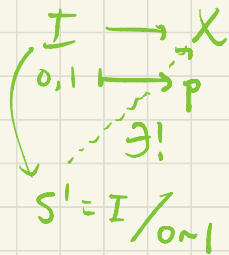 I → X
0,1 ↦ p
∃!
S¹ = I/0~1